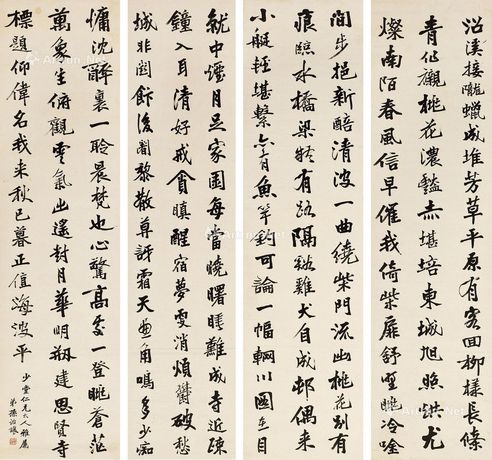 沿溪接隴蠟成堆芳草平原有客回柳樣長條
青作觀桃花濃豔赤堪培東城旭照光尤
燦南陌春風信早催我倚柴扉舒望眺冷唫
閒步挹新醅清波一曲繞柴門流出桃花別有
痕臨水橋梁橫有路隔谿雞犬自成邨偶來
小艇輕堪繫亦有魚竿釣可論一幅輞川圖在目
就中煙月足家園每當曉曙睡難成寺近疎
鐘入耳清好戒貪瞋醒宿夢更消煩鬱破愁
城非關飯後闍黎散尊訝霜天畫角鳴多少痴
慵沈醉裏一聆晨梵也心驚高處一登眺蒼茫
萬象生俯觀雲氣出遙對月華明建思賢寺
標題仰偉名我來秋已暮正值海波平
少雲仁兄大人雅屬
弟孫詒讓